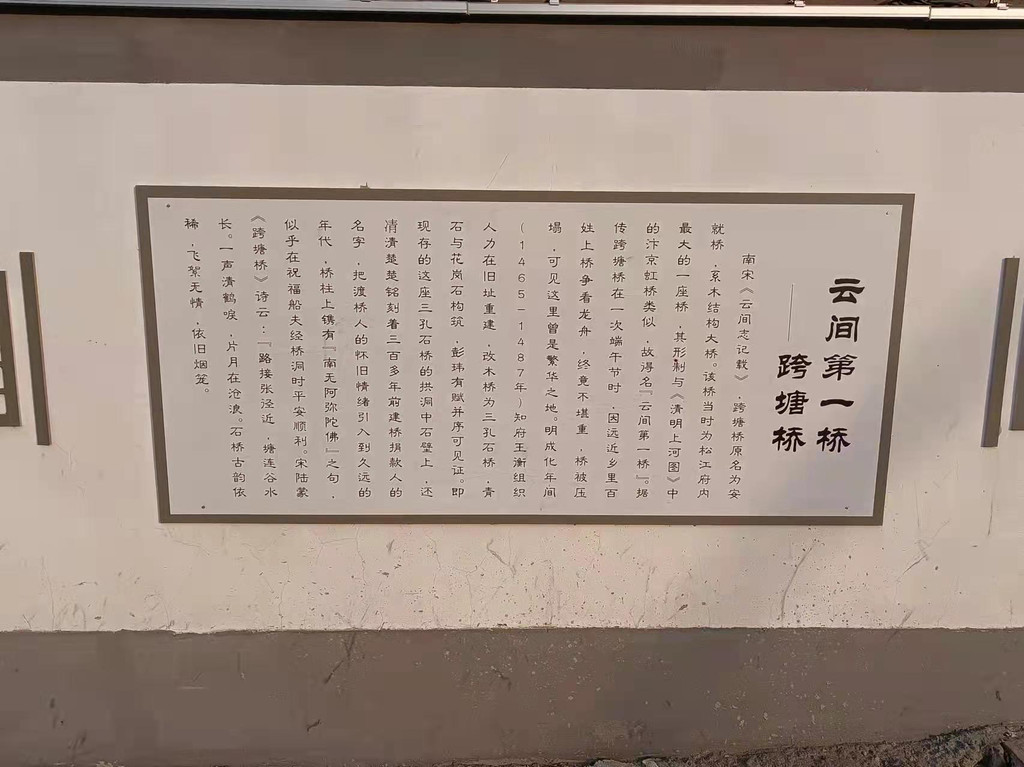 云间第一桥
——跨塘桥
南宋《云间志记载》，跨塘桥原名为安
就桥，系木结构大桥。该桥当时为松江府内
最大的一座桥，其形制与《清明上河图》中
的汴京虹桥类似，故得名『云间第一桥』。据
传跨塘桥在一次端午节时，因远近乡里百
姓上桥争看龙舟，终竟不堪重，桥被压
塌，可见这里曾是繁华之地。明成化年间
(1465-1487年)知府王衡组织
人力在旧址重建，改木桥为三孔石桥，青
石与花岗石构筑，彭玮有赋并序可见证。即
现存的这座三孔石桥的拱洞中石壁上，还
清清楚楚铭刻着三百多年前建桥捐款人的
名字，把渡桥人的怀旧情绪引入到久远的
年代，桥柱上镌有『南无阿弥陀佛』之句，
似乎在祝福船夫经桥洞时平安顺利。宋陆蒙
《跨塘桥》诗云：『路接张泾近，塘连谷水
长。一声清鹤唳，片月在沧浪。石桥古韵依
稀，飞絮无情，依旧烟笼。